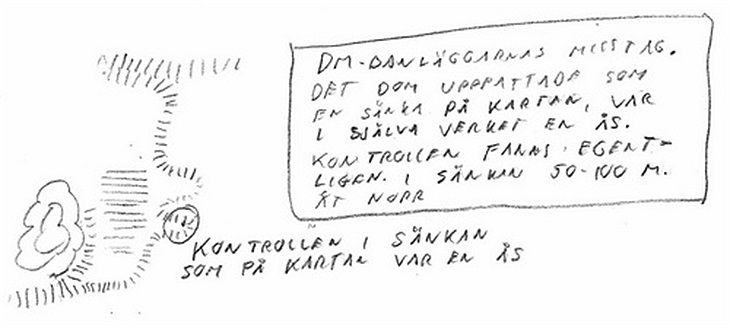 DM-BANLÄGGARNAS MISSTAG.
DET DOM UPPPATTADE SOM
EN SÄNKA PÅ KARTAN, VAR
I SJÄLVA VERKET EN ÅS.
KONTROLLEN FANNS EGENT-
LIGEN I SÄNKAN 50-100 M.
ÅT NORR
KONTROLLEN I SÄNKAN
SOM PÅ KARTAN VAR EN ÅS